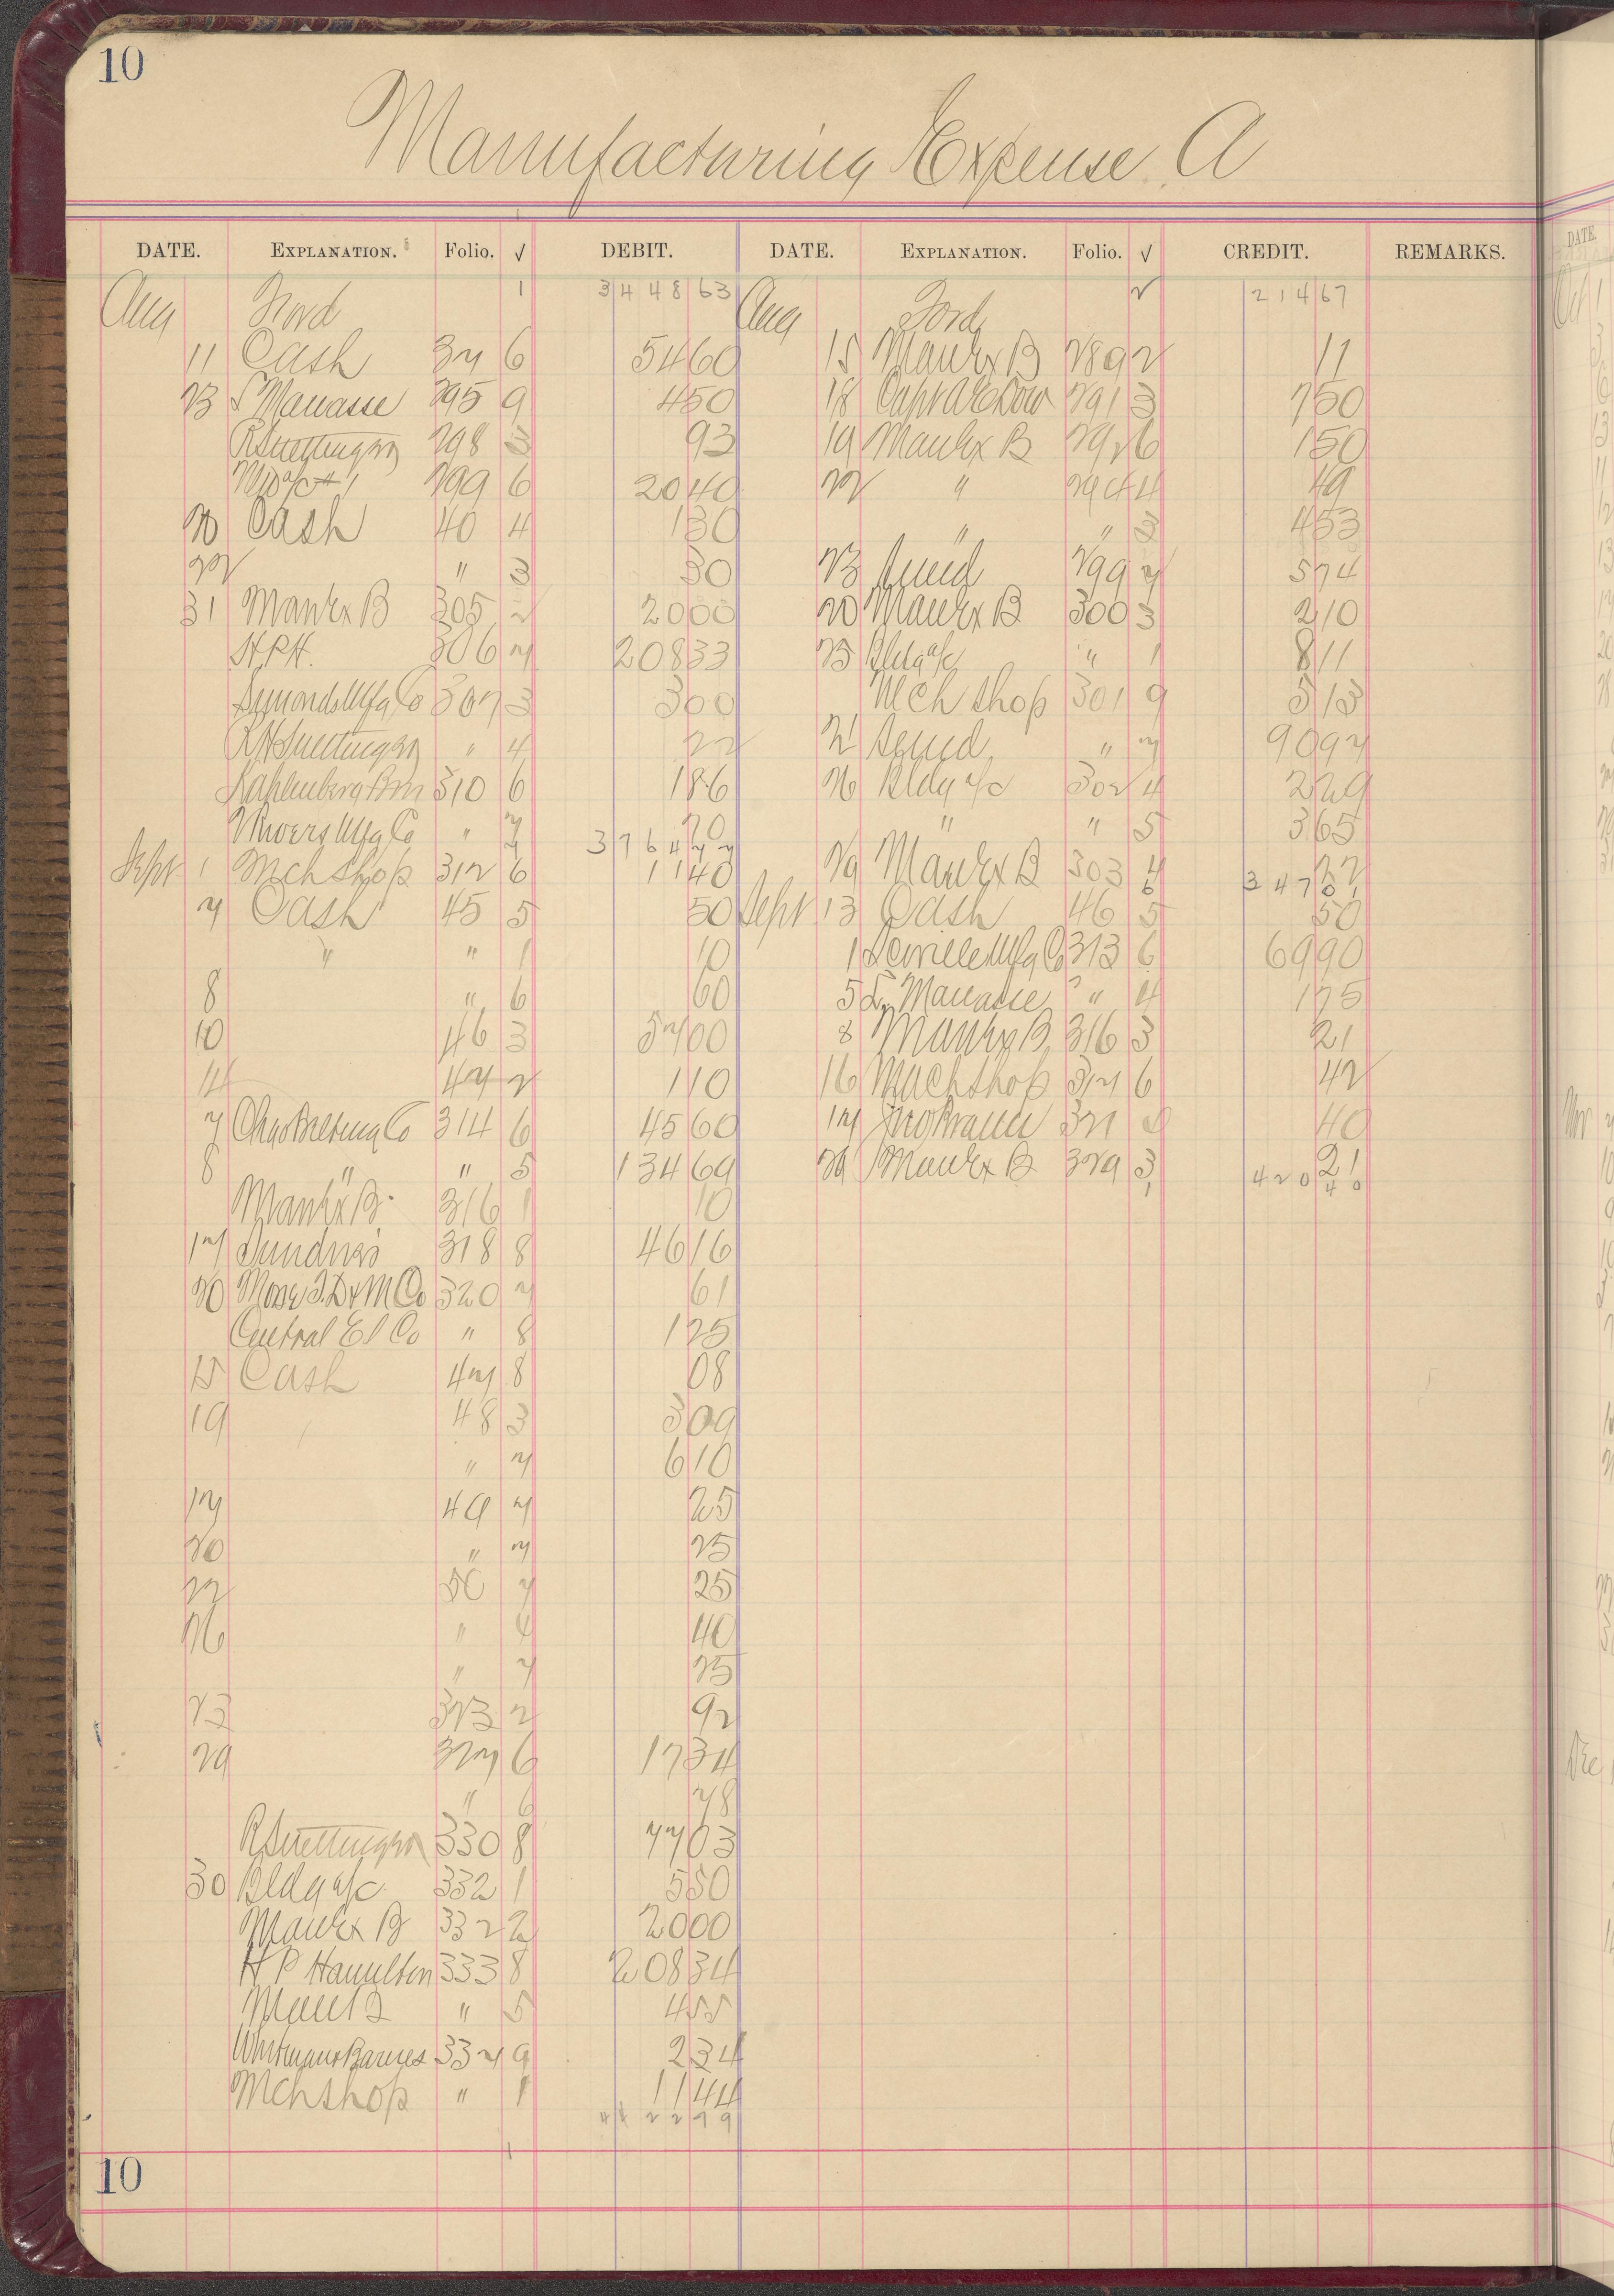 10
Manufacturing Expense A
DATE. EXPLANATION. Folio. √ DEBIT. DATE. EXPLANATION. Folio. √ CREDIT. REMARKS.
Aug Ford 1 3448 63 Aug Ford 2 214 67
11 Cash 37 6 54 60 15 Manfx B 289 2 11
23 L Manasse 295 9 4 50 18 291 3 7 50
298 3 93 19 Manfx B 292 6 1 50
299 6 20 40 22 " 294 4 49
20 Cash 40 4 1 30 " " 3 4 53
22 " 3 30 23 299 7 5 74
31 Manfx B 305 2 20 00 20 Manfx B 300 3 2 10
H.P.H. 306 7 208 33 25 Bldg a/c " 1 8 11
Mfg Co 307 3 3 00 Mch Shop 301 9 5 13
" 4 22 21 " 7 90 97
Kahlenberg Bros 310 6 1 86 26 Bldg a/c 302 4 2 29
Mfg Co " 7 20 " " 5 3 65
3764 77
Sept 1 Mch Shop 312 6 11 40 29 Manfx B 303 4 22
347 01
7 Cash 45 5 50 Sept 13 Cash 46 5 50
" " 1 10 1 Mfg Co 313 6 69 90
8 " 6 60 5 L Manasse " 4 1 75
10 46 3 57 00 8 Manfx B 316 3 21
14 47 2 1 10 16 Mach Shop 317 6 42
7 Chas Belting Co 314 6 45 60 17 321 40
8 " " 5 134 69 29 Manfx B 329 3 21
420 40
Manfx B 316 1 10
17 Sundries 318 8 46 16
20 Co 320 7 61
Central El Co " 8 1 25
15 Cash 47 8 08
19 48 3 3 09
" 7 6 10
17 49 7 25
20 " 7 25
22 50 7 25
26 " 4 40
" 7 25
23 323 2 92
29 327 6 17 34
" 6 78
330 8 77 03
30 Bldg a/c 332 1 5 50
Manfx B 332 2 20 00
H P Hamilton 333 8 208 34
" 5 4 55
Whitman & Barnes 334 9 2 34
Mch Shop " 1 11 44
4422 99
10